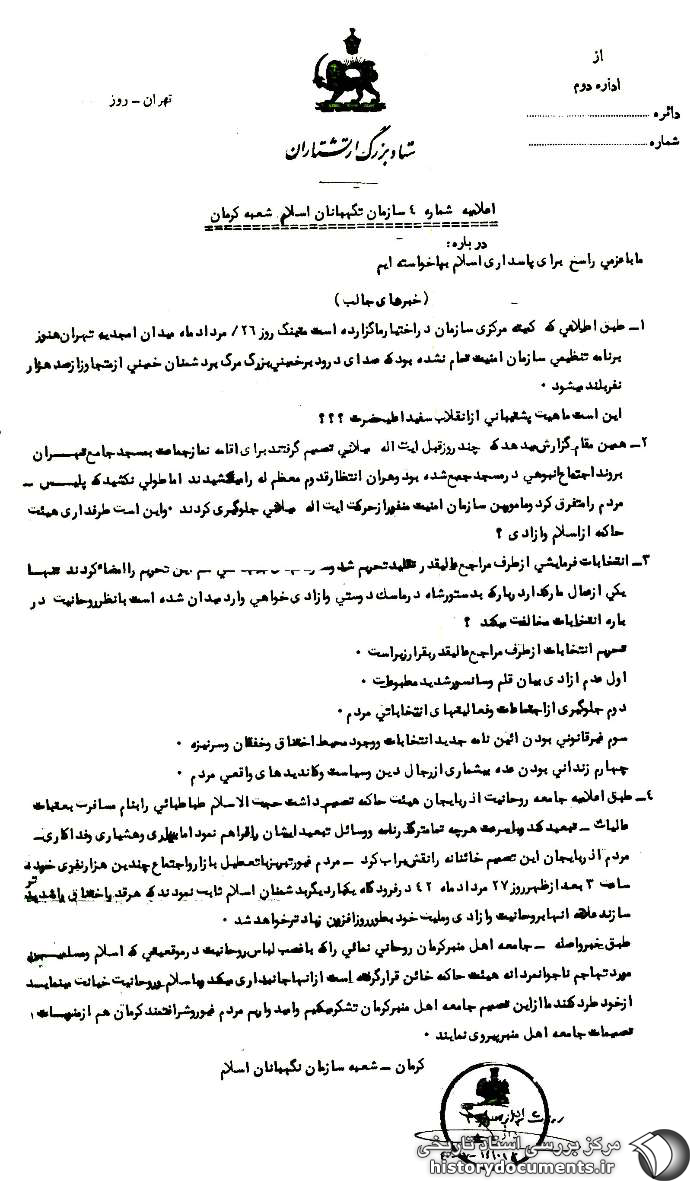 از
اداره دوم
دائره
شماره
تهران - روز
ستاد بزرگ ارتشتاران
اعلامیه شماره ٤ سازمان نگهبانان اسلام شعبه کرمان
درباره:
ما با عزمی راسخ برای پاسداری اسلام بپاخواسته ایم
(خبرهای جالب)
١- طبق اطلاعی که کمیته مرکزی سازمان در اختیار ما گزارده است متینگ روز ٢٦/ مرداد ماه میدان امجدیه تهران هنوز
برنامه تنظیمی سازمان امنیت تمام نشده بود که صدای درود بر خمینی بزرگ مرگ بر دشمنان خمینی از متجاوز از صد هزار
نفر بلند میشود ٠
این است ماهیت پشتیبانی از انقلاب سفید اعلیحضرت ؟؟؟
٢- همین مقام گزارش میدهد که چند روز قبل ایت اله میلانی تصمیم گرفتند برای اقامه نماز جماعت بمسجد جامع تهران
بروند اجتماع انبوهی در مسجد جمع شده بود وهران انتظار قدوم معظم له را میکشیدند اما طولی نکشید که پلیس -
مردم را متفرق کرد و مامورین سازمان امنیت منفور از حرکت ایت اله میلانی جلوگیری کردند ٠ واین است طرفداری هیئت
حاکمه از اسلام وازادی ؟
٣- انتخابات فرمایشی از طرف مراجع عالیقدر تقلید تحریم شد این تحریم را امضاء کردند تنها
یکی از عمال مارکدار دربار که بدستور شاه در ماسک دوستی وازادی خواهی وارد میدان شده است با نظر روحانیت در
باره انتخابات مخالفت میکند ؟
تحریم انتخابات از طرف مراجع عالیقدر بقرار زیر است ٠
اول عدم ازادی بیان قلم وسانسور شدید مطبوطات ٠
دوم جلوگیری از اجتماعات وفعالیتهای انتخاباتی مردم ٠
سوم غیر قانونی بودن ائین نامه جدید انتخابات ووجود محیط اختناق وخفقان وسرنیزه ٠
چهارم زندانی بودن عده بیشماری از رجال دین وسیاست وکاندیدهای واقعی مردم ٠
٤- طبق اعلامیه جامعه روحانیت اذربایجان هیئت حاکمه تصمیم داشت حجت الاسلام طباطبائی را بنام مسافرت بعتبات
عالیات - تبعید کند وبا سرعت هر چه تمامتر گذرنامه ووسائل تبعید ایشان را فراهم نمود اما بیداری وهشیاری وفداکاری -
مردم اذربایجان این تصمیم خائنانه را نقش بر اب کرد - مردم غیور تبریز با تعطیل بازار واجتماع چندین هزار نفری خود در
ساعت ٣ بعد از ظهر روز ٢٧ مرداد ماه ٤٢ در فرودگاه یکبار دیگر بدشمنان اسلام ثابت نمودند که هر قدر اختناق را شدید تر
سازند علاقه انها بروحانیت وازادی وملیت خود بطور روز افزون زیاد تر خواهد شد ٠
طبق خبر واصله - جامعه اهل منبر کرمان روحانی نمائی را که با غصب لباس روحانیت در موقعیتی که اسلام ومسلمین
مورد تهاجم ناجوانمردانه هیئت حاکمه خائن قرار گرفته است از انها جانبداری میکند وباسلام وروحانیت خیانت مینماید
از خود طرد کنند ما از این تصمیم جامعه اهل منبر کرمان تشکر میکنیم وامیدواریم مردم غیور وشرافتمند کرمان هم از
تصمیمات جامعه اهل منبر پیروی نمایند ٠
کرمان - شعبه سازمان نگهبانان اسلام
مرکز بررسی اسناد تاریخی
historydocuments.ir